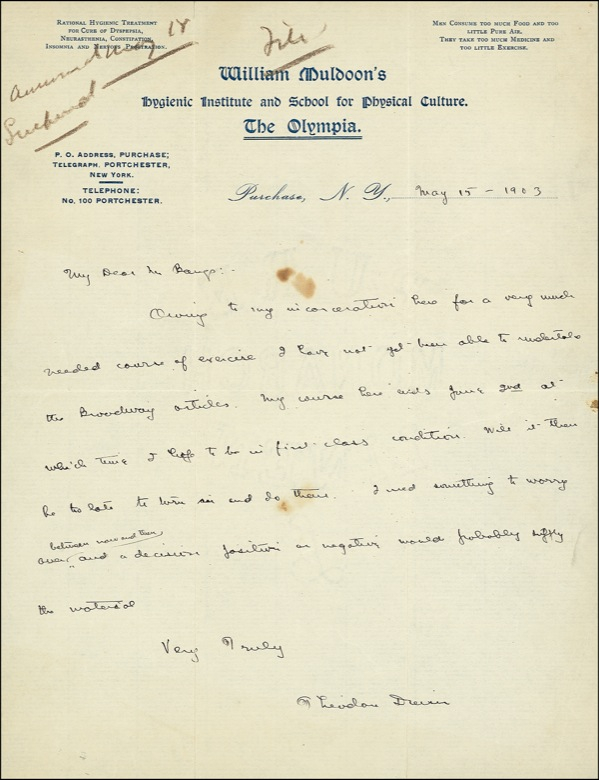 Rational Hygienic Treatment
for Cure of Dyspepsia,
Neurasthenia, Constipation,
Insomnia and Nervous Prostration.
Men Consume too much Food and too
little Pure Air.
They take too much Medicine and
too little Exercise.
Answered May 18
File
William Muldoon's
Hygienic Institute and School for Physical Culture.
The Olympia.
P. O. Address, Purchase;
Telegraph, Portchester,
New York.
Telephone:
No. 100 Portchester.
Purchase, N. Y., May 15 - 1903
My Dear Mr Bangs:-
Owing to my incarceration here for a very much
needed course of exercise I have not yet been able to undertake
the Broadway articles. My course here ends June 2nd at
which time I hope to be in first-class condition. Will it then
be too late to turn in and do them. I need something to worry
between now and then
over and a decision positive or negative would probably supply
the material
Very Truly
Theodore Dreiser